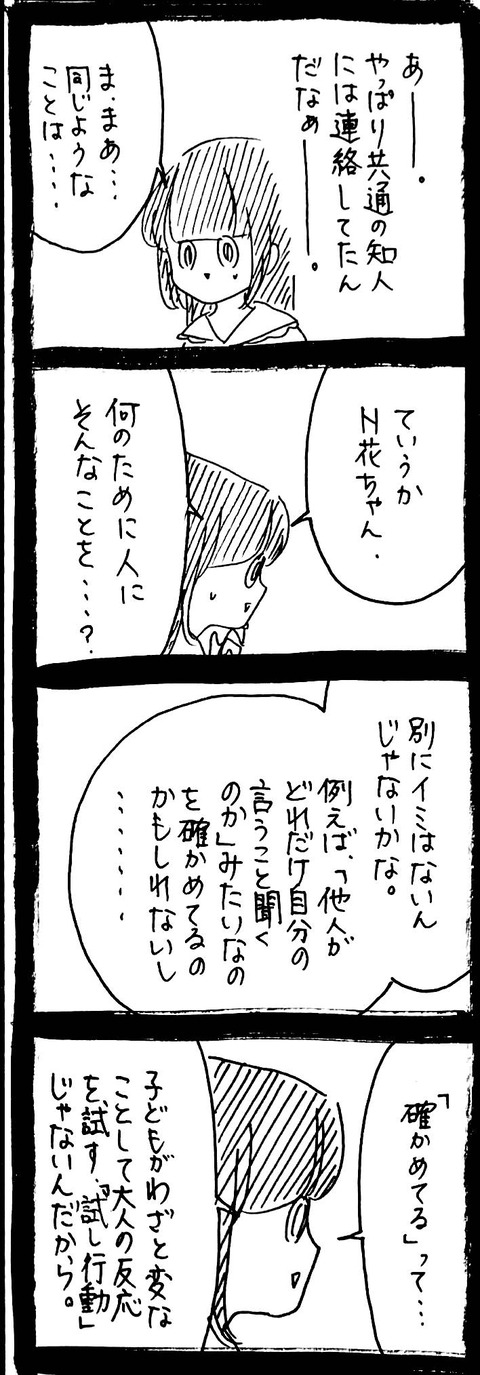 あー。
やっぱり共通の知人
には連絡してたん
だなぁー。
ま、まぁ...
同じような
ことは....
ていうか
N花ちゃん.
何のために人に
そんなことを...?
別にイミはないん
じゃないかな。
例えば、「他人が
どれだけ自分の
言うこと聞く
のか」みたいなの
を確かめてるの
かもしれないし
........
「確かめてる」って...
子どもがわざと変な
ことして大人の反応
を試す、「試し行動」
じゃないんだから。